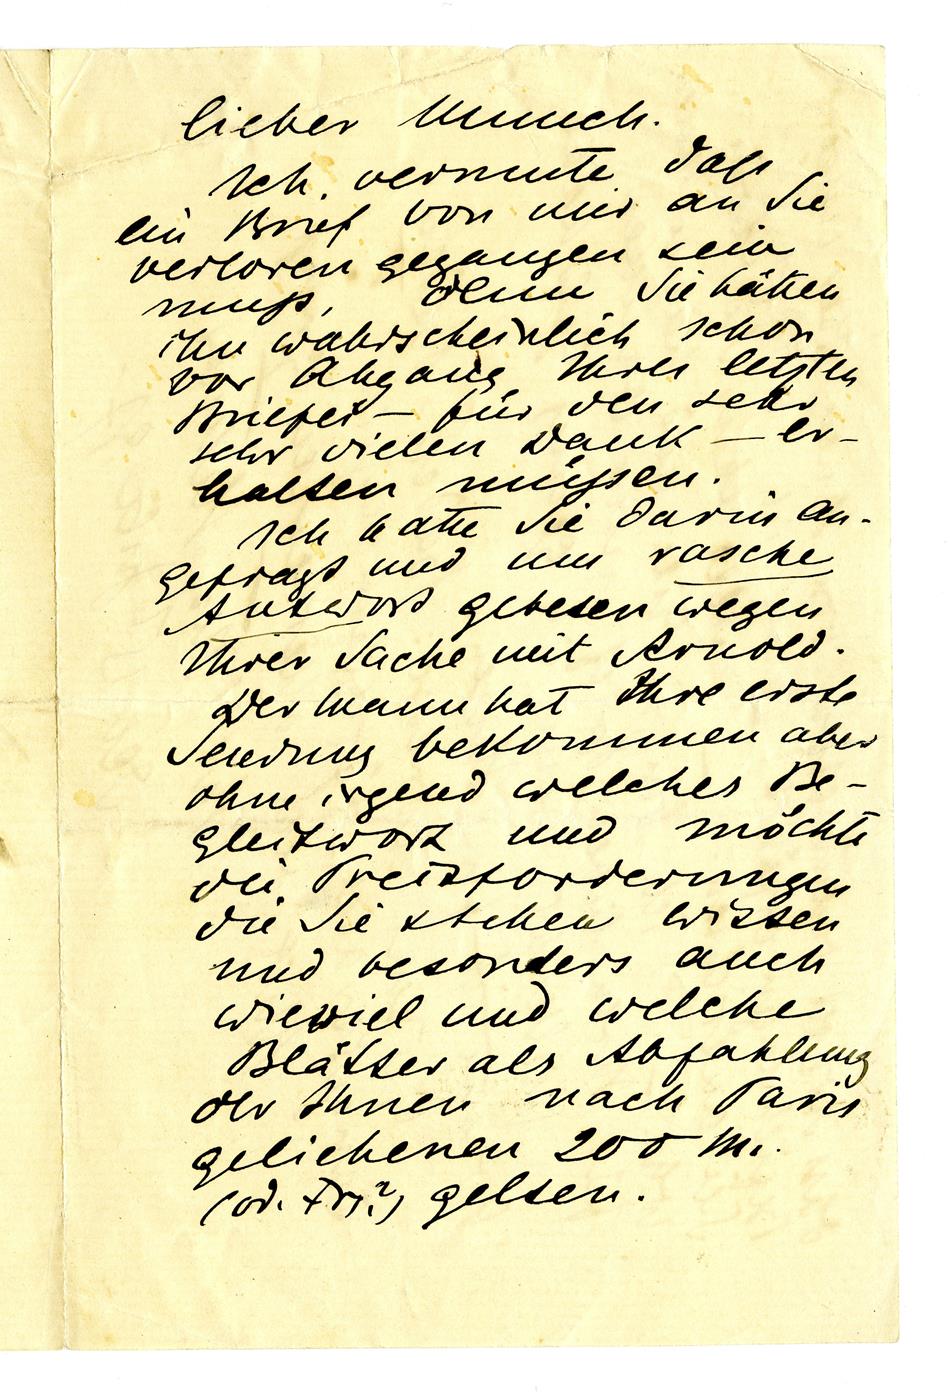 lieber Munch.
Ich vermute daß
ein Brief von mir an Sie
verloren gegangen sein
muß, denn Sie hätten
ihn wahrscheinlich schon
vor Abgang Ihres letzten
Briefes – für den sehr
sehr vielen Dank – er-
halten müssen.
Ich hatte Sie darin an-
gefragt und um rasche
Antwort gebeten wegen
Ihrer Sache mit Arnold.
Der Mann hat Ihre erste
Sendung bekommen aber
ohne irgend welches Be-
gleitwort und möchte
die Preisforderungen
die Sie stellen wissen
und besonders auch
wieviel und welche
Blätter als Abzahlung
der Ihnen nach Paris
geliehenen 200 M.
(od. Frs?) gelten.